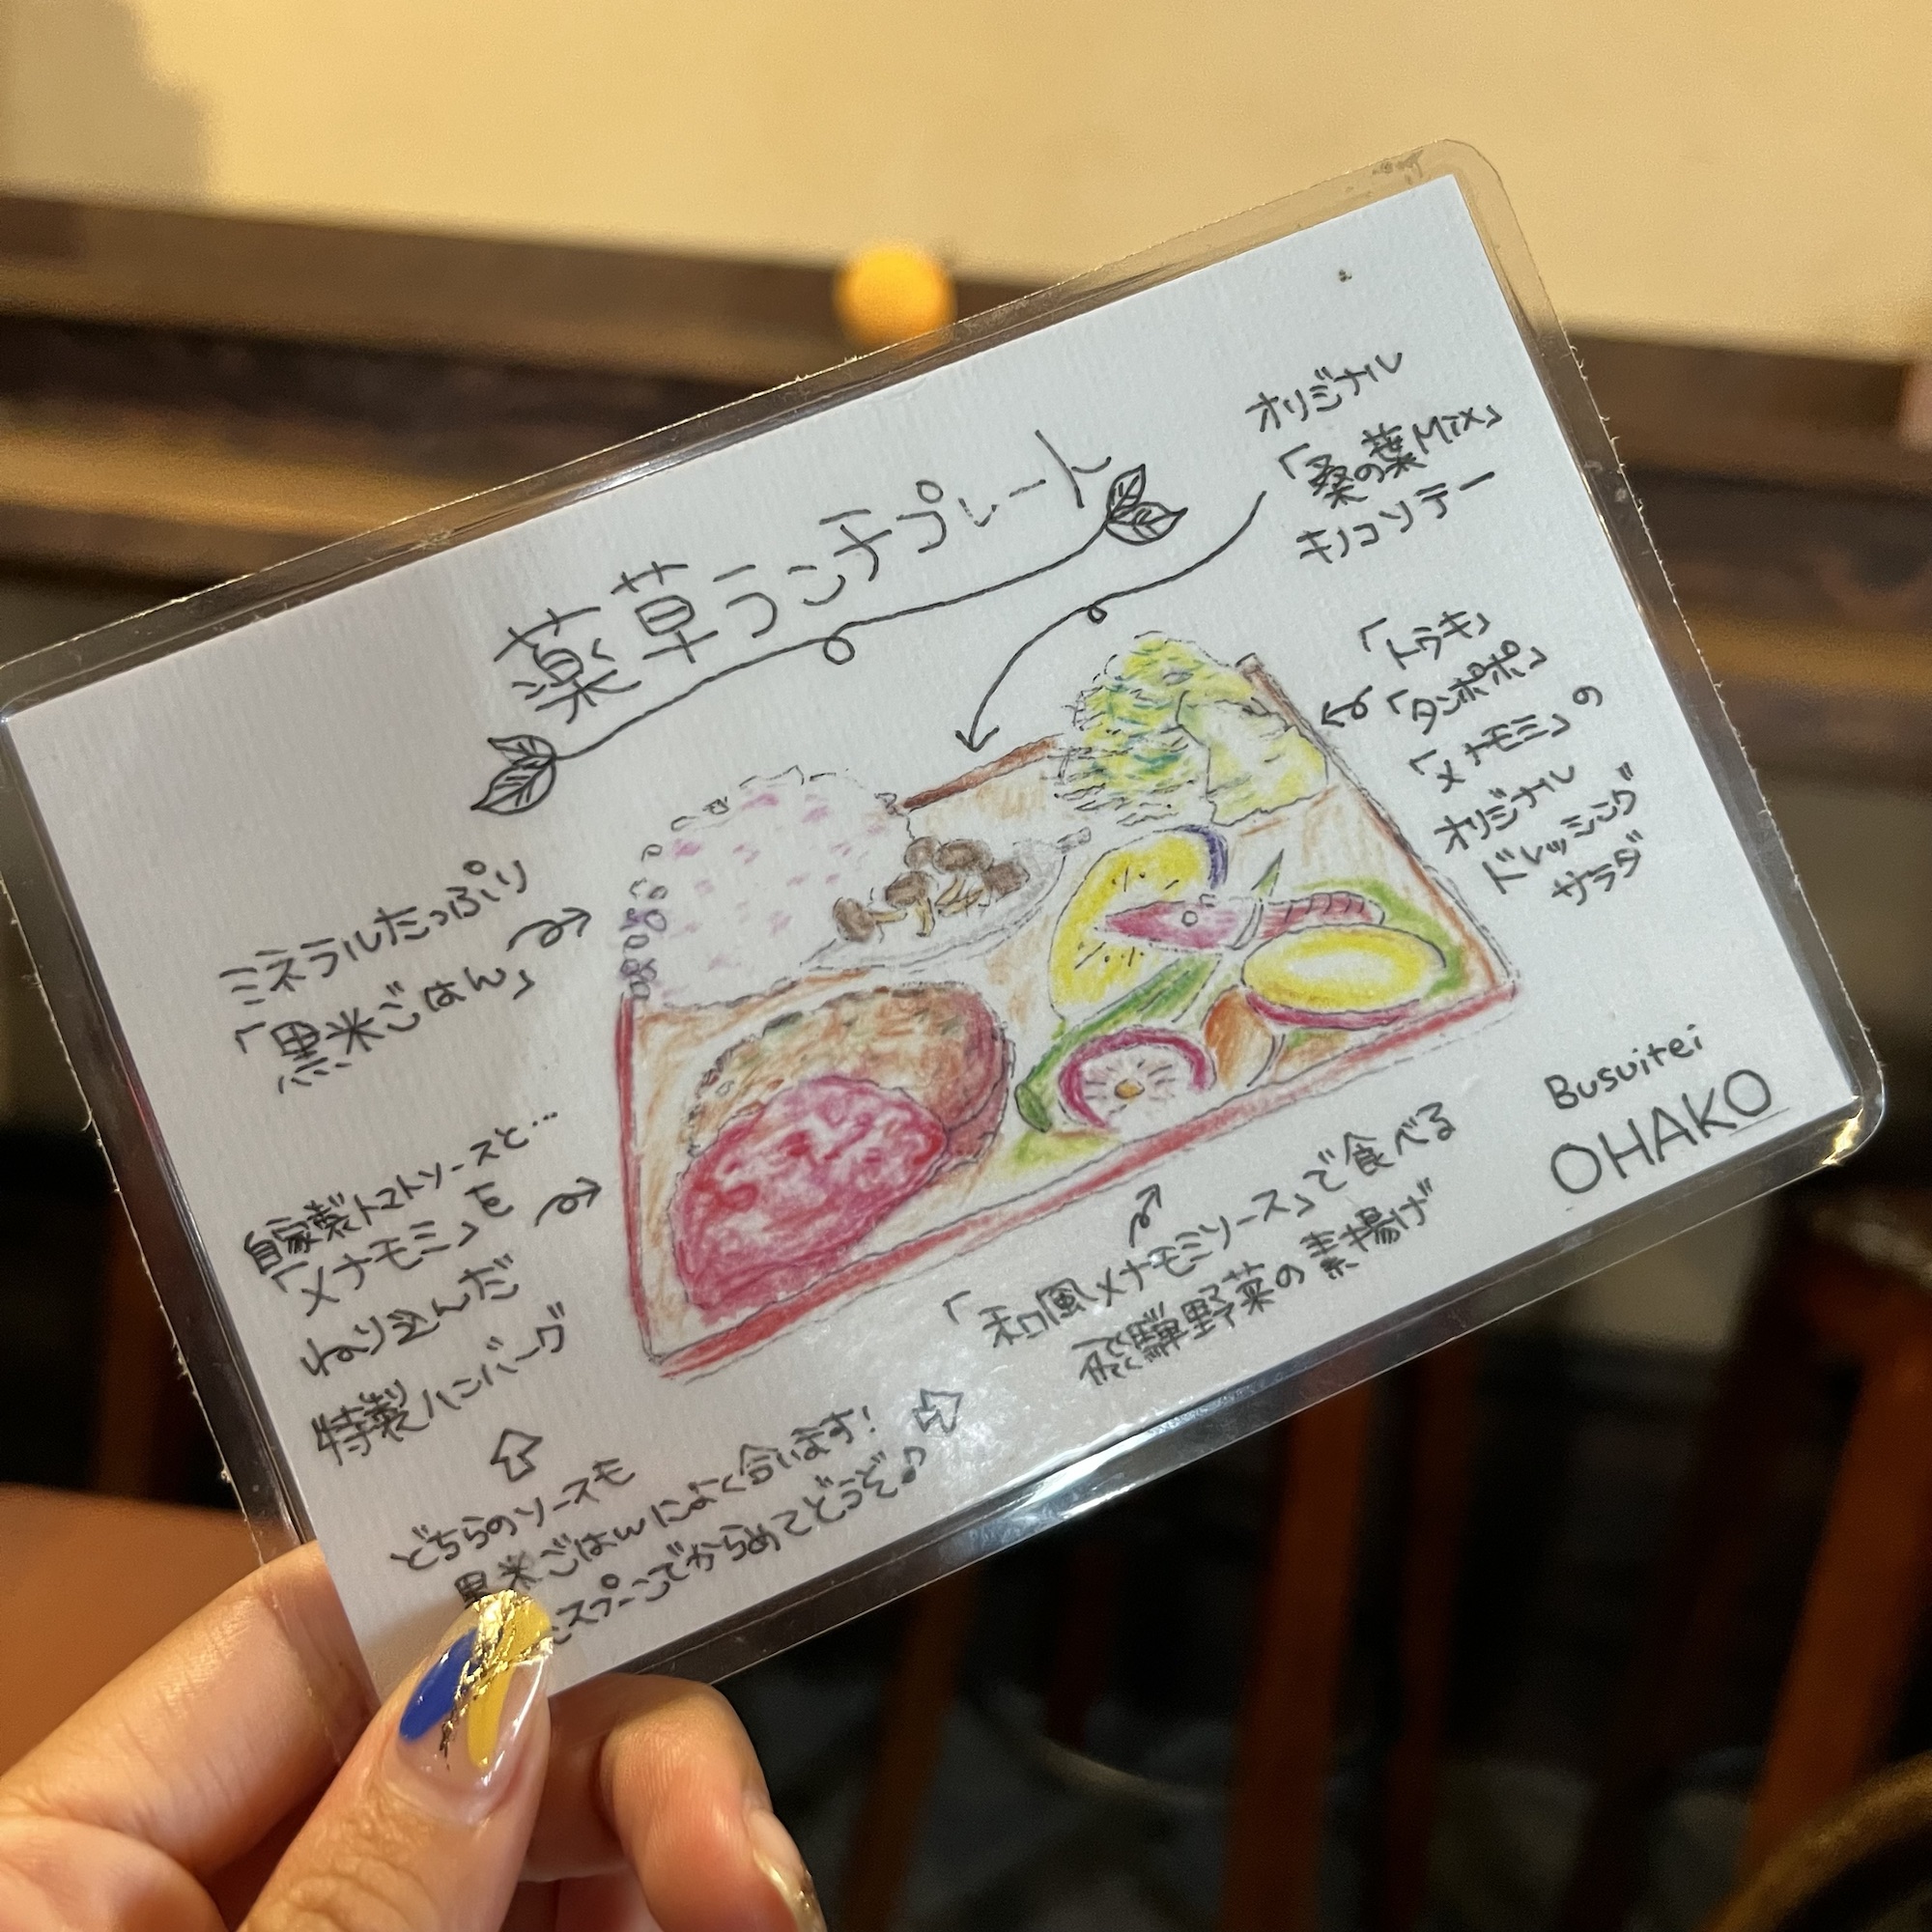 薬草ランチプレート
オリジナル
「桑の葉Mix」
キノコソテー
「トウキ」
「タンポポ」
「メナモミ」の
オリジナル
ドレッシング
サラダ
ミネラルたっぷり
「黒米ごはん」
自家製トマトソースと…
「メナモミ」を
ねり込んだ
特製ハンバーグ
「和風メナモミソース」で食べる
飛騨野菜の素揚げ
どちらのソースも
黒米ごはんによく合います!
スプーンでからめてどうぞ♪
Busuitei
OHAKO